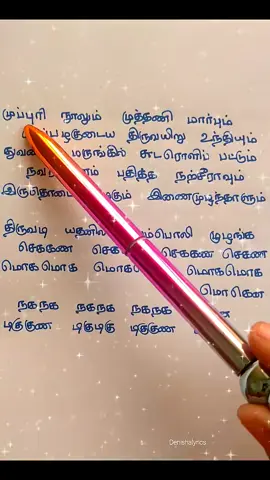 முப்புரி நூலும் முத்தணி மார்பும்
திருவயிறு உந்தியும்
மருங்கில் சுடரொளிப் பட்டும்
பதித்த நற்சீராவும்
இணைமுழந்தாளும்
திருவடி முழங்க
செககண செககண செகண
மொகமொக மொகமொக
மொகென
நகநக நகநக நகநக
டிகுகுண டிகுடிகு டிகுகுண
Denishalyrics